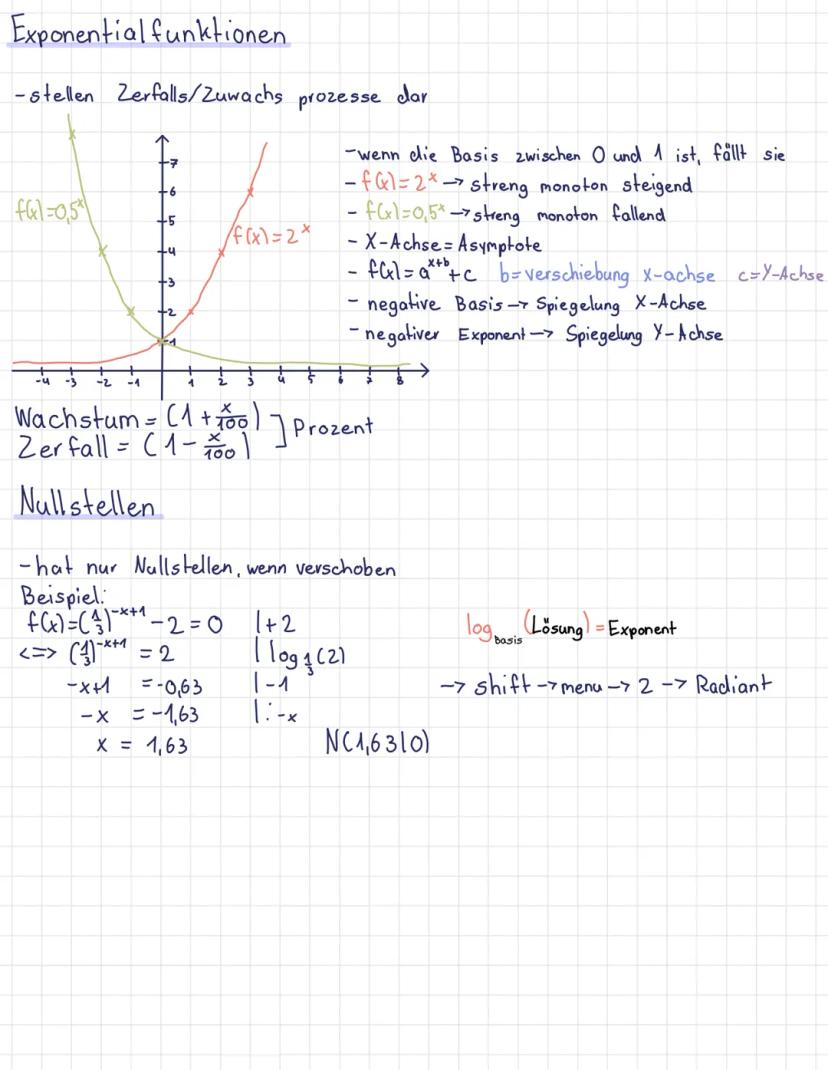 Exponentialfunktionen
- stellen Zerfalls/Zuwachs prozesse dar
- wenn die Basis zwischen 0 und 1 ist, fällt sie
- f(x)=2^x → streng monoton steigend
- f(x)=0,5^x → streng monoton fallend
- X-Achse = Asymptote
- f(x)=a^x+b +c b=verschiebung x-achse c=Y-Achse
- negative Basis → Spiegelung X-Achse
- negativer Exponent → Spiegelung Y-Achse
f(x)=0,5^x
f(x)=2^x
7
6
5
4
3
2
1
-4 -3 -2 -1 1 2 3 4 5 6 7 8
Wachstum = (1 + x/100) ] Prozent
Zerfall = (1 - x/100)
Nullstellen
- hat nur Nullstellen, wenn verschoben
Beispiel:
f(x)=(1/3)^-x+1 - 2 = 0 |+2
<=> (1/3)^-x+1 = 2 | log 1/3 (2)
-x+1 = -0,63 |-1
-x = -1,63 |:-x
x = 1,63 N(1,63|0)
log Basis (Lösung) = Exponent
→ shift → menu → 2 → Radiant